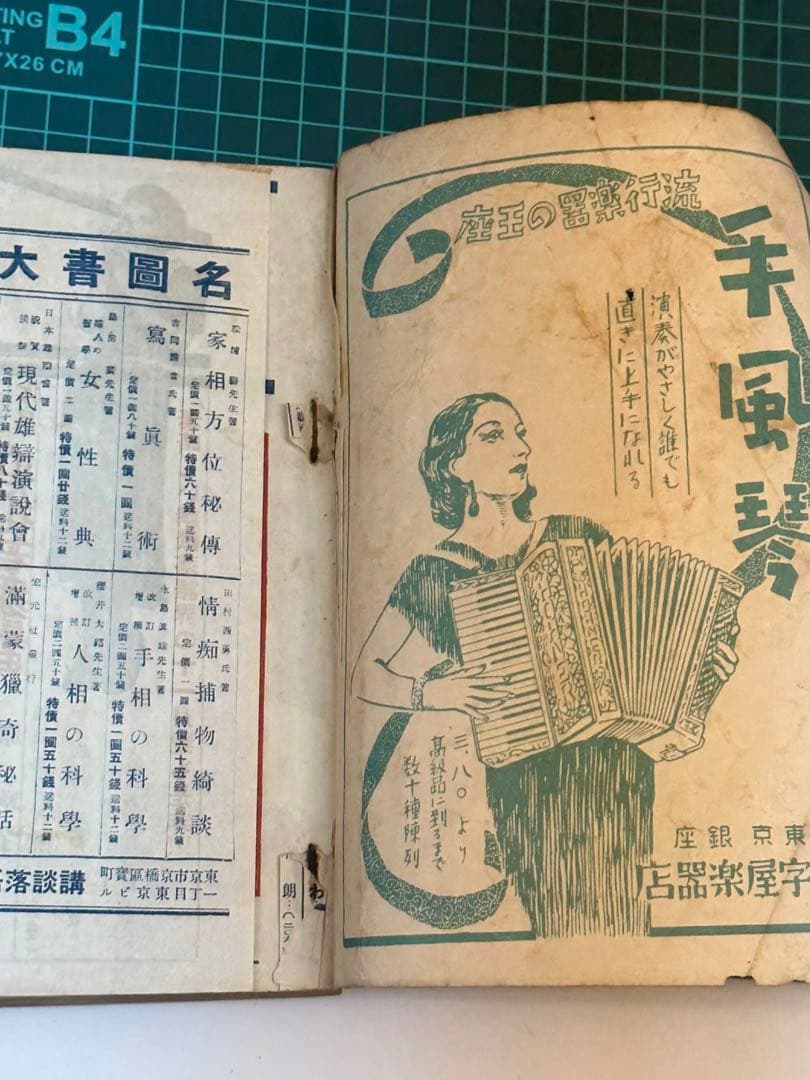 TING
B4
7X26 CM
流行楽器の王座
手風琴
演奏がやさしく誰でも
直きに上手になれる
三、八〇より
高級品に到るまで
数十種陳列
東京 銀座
字屋楽器店
名圖書大
家相方位秘傳
定價一圓五十錢 特價六十錢 送料九錢
寫眞術
定價一圓八十錢 特價一圓 送料十二錢
女性典
定價二圓 特價一圓廿錢 送料十二錢
現代雄辯演說會
定價一圓五十錢 特價八十錢
田村西男氏著
情痴捕物綺談
定價一圓 特價六十五錢 送料九錢
改訂增補
手相の科學
定價二圓五十錢 特價一圓五十錢 送料十二錢
櫻井大路先生著
改訂增補
人相の科學
定價二圓五十錢 特價一圓五十錢 送料十二錢
宏元社發行
滿蒙獵奇秘話
東京市京橋區寶町
一丁目東京ビル
講談落
わ